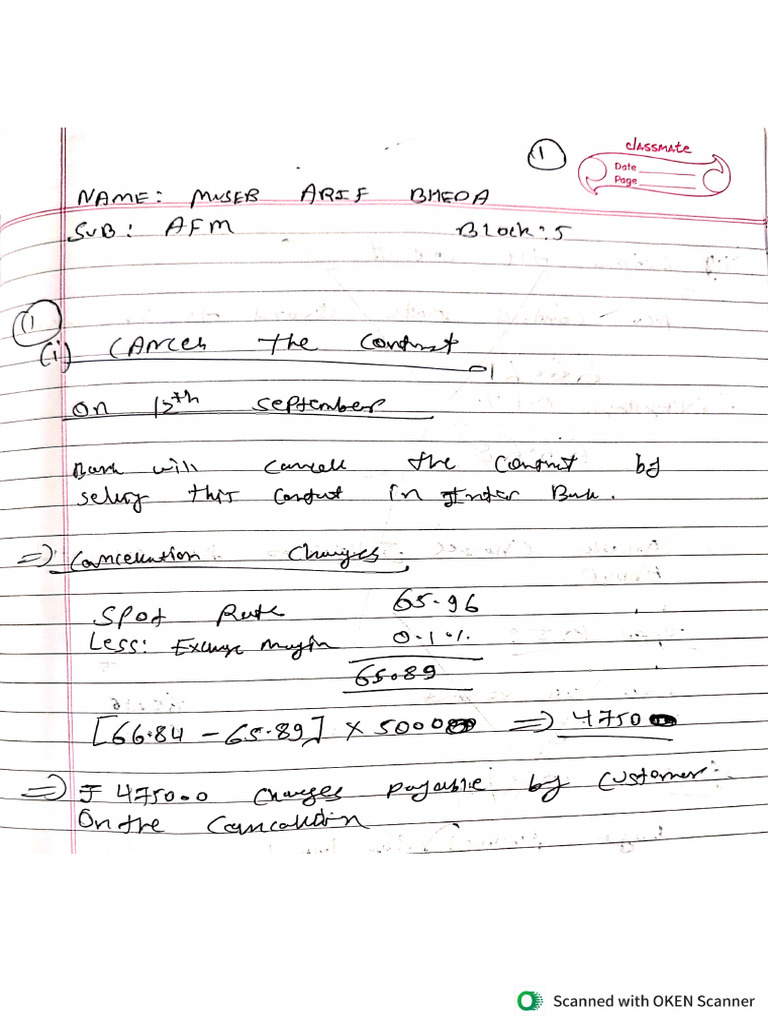 1
classmate
Date
Page
NAME: MUSEB ARIF BHEDA
SUB: AFM Block: 5
1
(i) Cancel the Contract
on 15th September
Bank will cancell the contract by
selling this contract in Inter Bank.
=> Cancellation Charges.
Spot Rate 65.96
Less: Exchange margin 0.1%
65.89
[66.84 - 65.89] × 50000 => 47500
=> ₹ 47500.0 charges payable by customer.
On the Cancellation
Scanned with OKEN Scanner